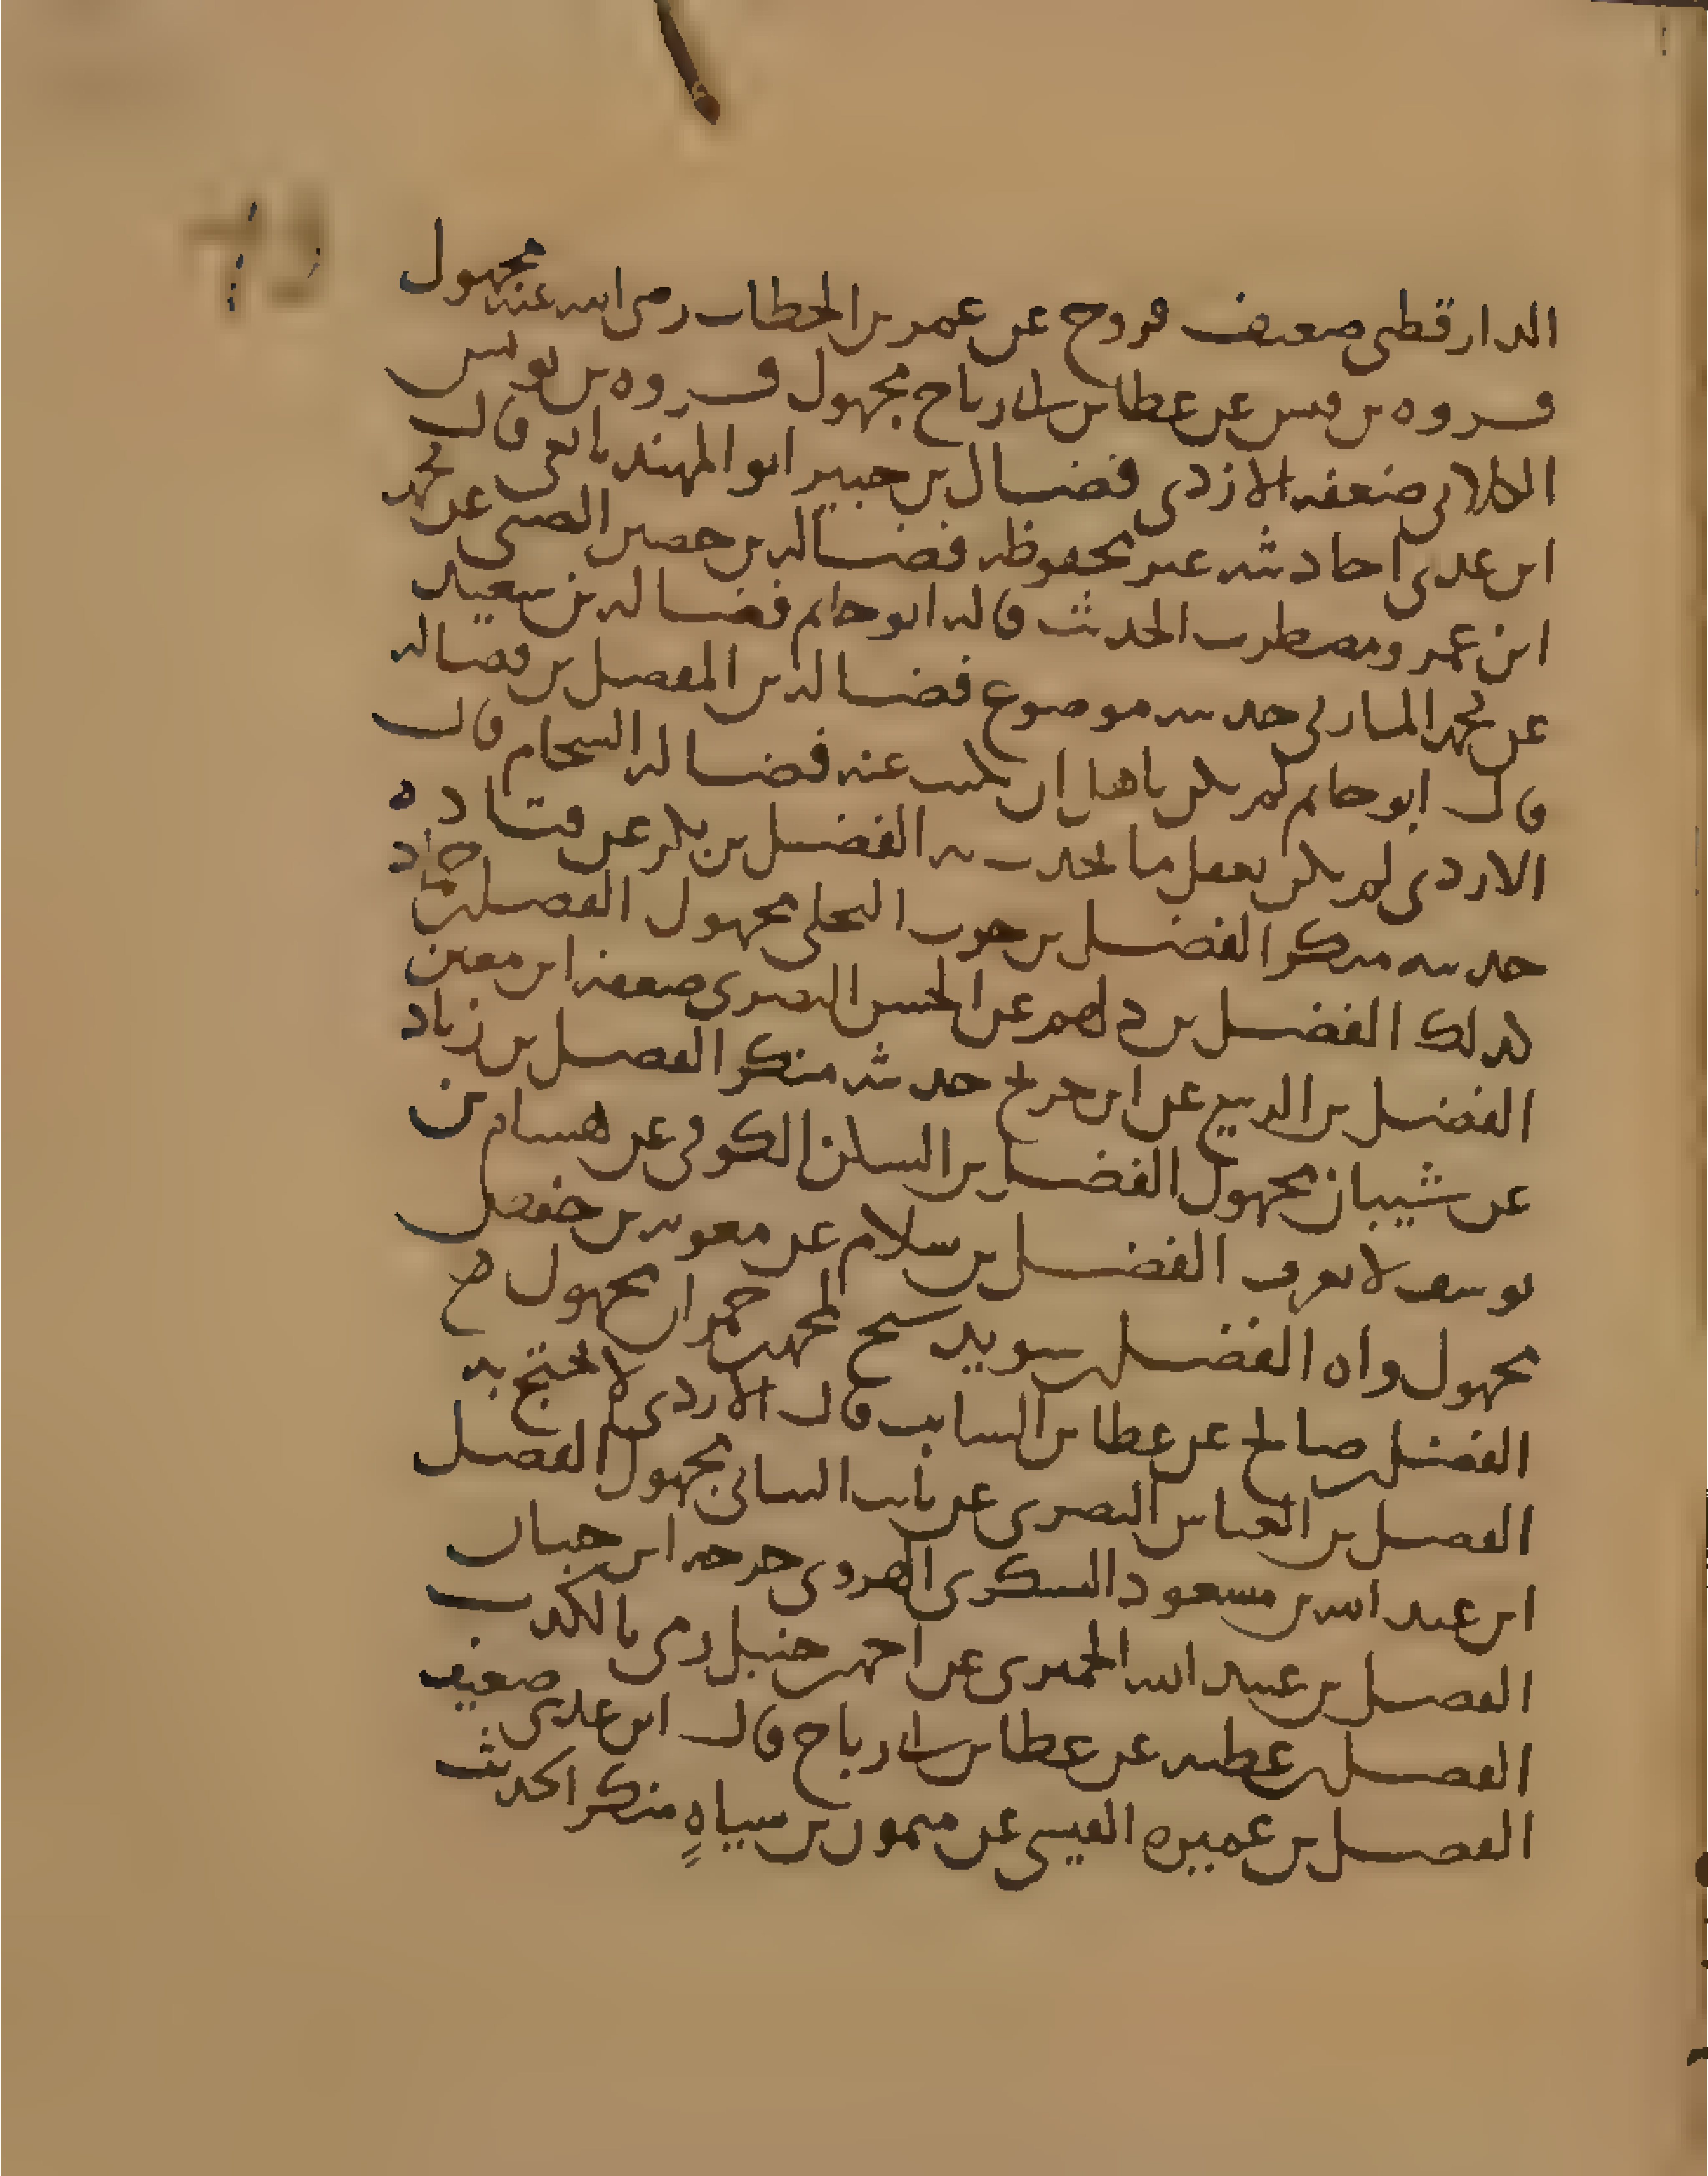 الدارقطى ضعيف فروح عن عمر بن الخطاب رضى الله عنه مجهول
فروه بن قيس عن عطا بن ابى رباح مجهول فروه بن يونس
الكلابى ضعفه الازدى فضال بن جبير ابو المهند تابعى قال
ابن عدى احاديثه غير محفوظه فضاله بن حصين الضبى عن محمد
ابن عمرو مضطرب الحديث قاله ابو حاتم فضاله بن سعيد
عن محمد الماربى حديثه موضوع فضاله بن المفضل بن فضاله
قال ابو حاتم لم يكن باهل ان يكتب عنه فضاله الشحام قال
الازدى لم يكن يعقل ما يحدث به الفضل بن بكر عن قتاده
حديثه منكر الفضل بن حرب البجلى مجهول الفضل بن حماد
كذلك الفضل بن دلهم عن الحسن البصرى ضعفه ابن معين
الفضل بن الربيع عن ابن جريج حديثه منكر الفضل بن زياد
عن شيبان مجهول الفضل بن السكن الكوفى عن هشام بن
يوسف لا يعرف الفضل بن سلام عن معويه بن حفص
مجهول واه الفضل بن سويد شيخ لمحمد بن حمران مجهول
الفضل بن صالح عن عطا بن السايب قال الازدى لا يحتج به
الفضل بن العباس البصرى عن ثابت البنانى مجهول الفضل
ابن عبد الله بن مسعود اليشكرى الهروى جرحه ابن حبان
الفضل بن عبيد الله الحميرى عن احمد بن حنبل رمى بالكذب
الفضل بن عطيه عن عطا بن ابى رباح قال ابن عدى ضعيف
الفضل بن عميره القيسى عن ميمون بن سياه منكر الحديث